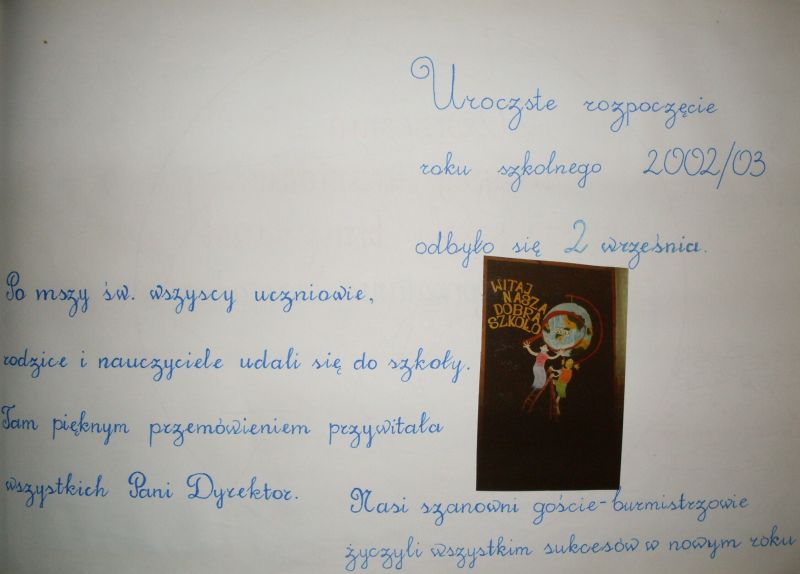 Uroczste rozpoczęcie
roku szkolnego 2002/03
odbyło się 2 września.
WITAJ
NASZA
DOBRA
SZKOŁO
Po mszy św. wszyscy uczniowie,
rodzice i nauczyciele udali się do szkoły.
Tam pięknym przemówieniem przywitała
wszystkich Pani Dyrektor.
Nasi szanowni goście-burmistrzowie
życzyli wszystkim sukcesów w nowym roku